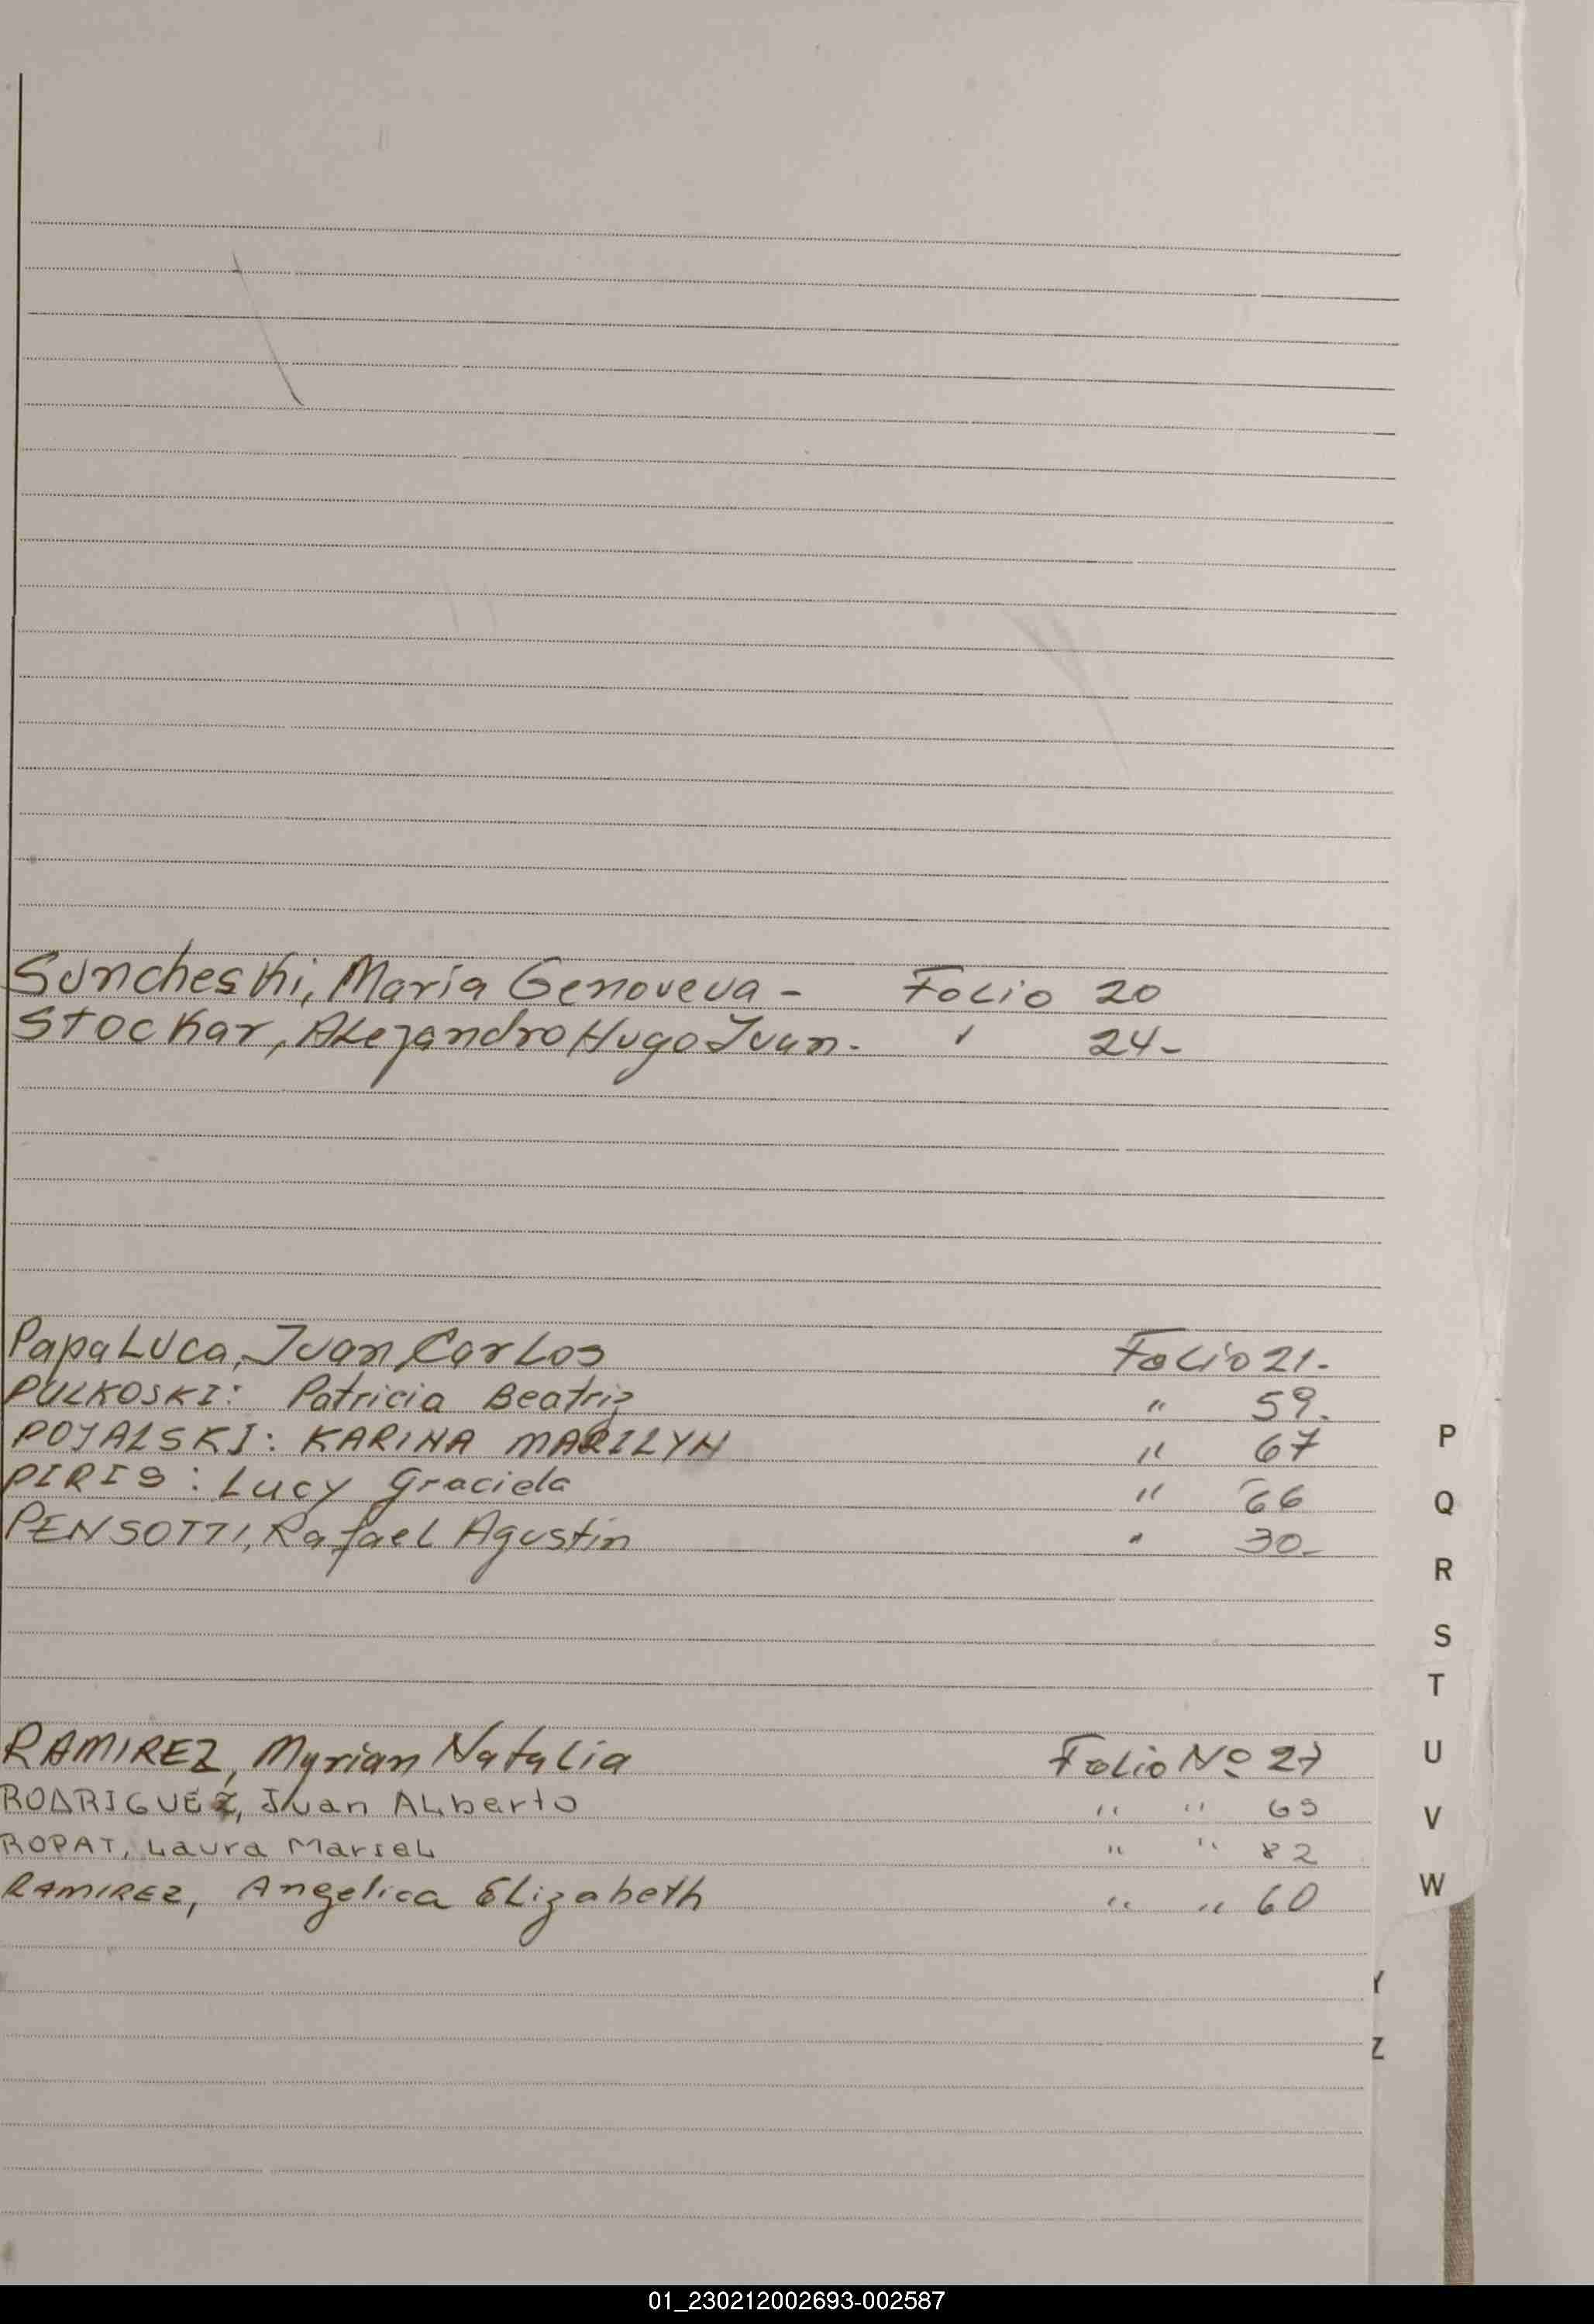 Suncheski, María Genoveva - Folio 20
Stockar, Alejandro Hugo Juan. " 24-
PapaLuca, Juan Carlos Folio 21.
PULKOSKI: Patricia Beatriz " 59.
POJALSKI: KARINA MARILYN " 67
PIRIS: Lucy Graciela " 66
PENSOTTI, Rafael Agustín " 30-
RAMIREZ, Myrian Natalia Folio Nº 27
RODRIGUEZ, Juan ALberto " " 69
ROPAT, Laura MariseL " " 82
RAMIREZ, Angelica Elizabeth " " 60
P
Q
R
S
T
U
V
W
Y
Z
01_230212002693-002587